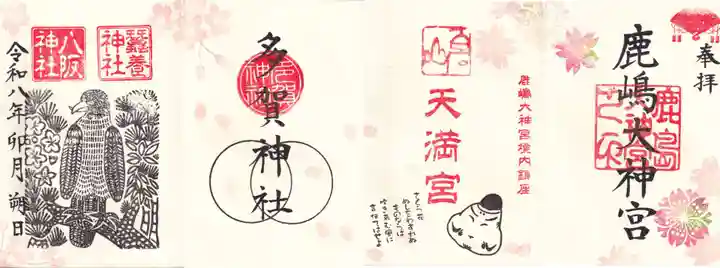 奉拝
鹿嶋大神宮
鹿嶋大神宮境内鎮座
天満宮
多賀神社
蠶養神社
八阪神社
令和八年卯月朔日